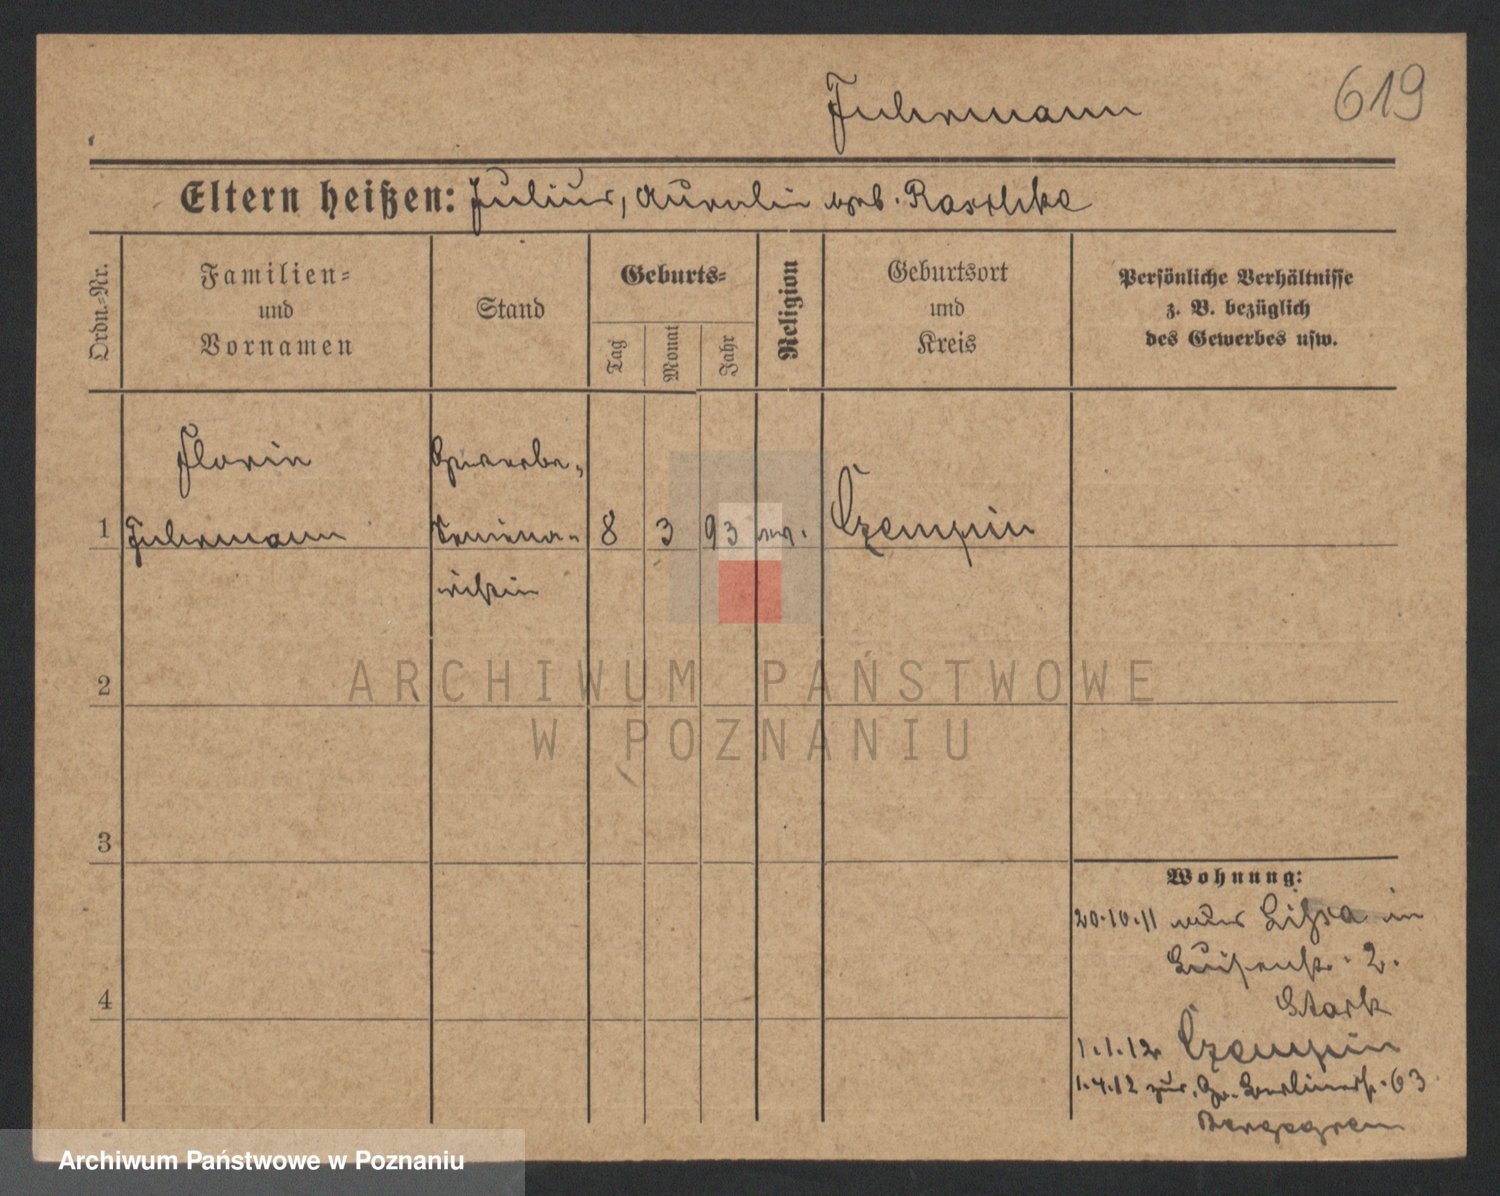 Fuhrmann
619
Eltern heißen: Julius, Aurelie geb. Raschke
Ordn.-Nr.
Familien-
und
Vornamen
Stand
Geburts-
Tag
Monat
Jahr
Religion
Geburtsort
und
Kreis
Persönliche Verhältnisse
z. B. bezüglich
des Gewerbes usw.
Florin
Gewerbe-
1 Fuhrmann Semina- 8 3 93 Czempin
ristin
2
3
4
Wohnung:
20.10.11 Lissa in
Luisenstr. 2.
Stark
1.1.12 Czempin
1.4.12 zur. Gr. Berlinerstr. 63
ARCHIWUM PAŃSTWOWE
W POZNANIU
Archiwum Państwowe w Poznaniu